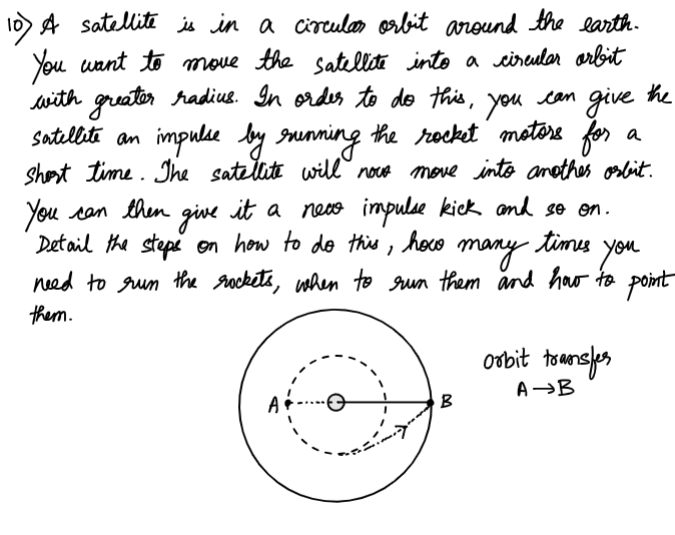 10) A satellite is in a circular orbit around the earth.
You want to move the satellite into a circular orbit
with greater radius. In order to do this, you can give the
satellite an impulse by running the rocket motors for a
short time. The satellite will now move into another orbit.
You can then give it a new impulse kick and so on.
Detail the steps on how to do this, how many times you
need to run the rockets, when to run them and how to point
them.
orbit transfer
A→B
A
B